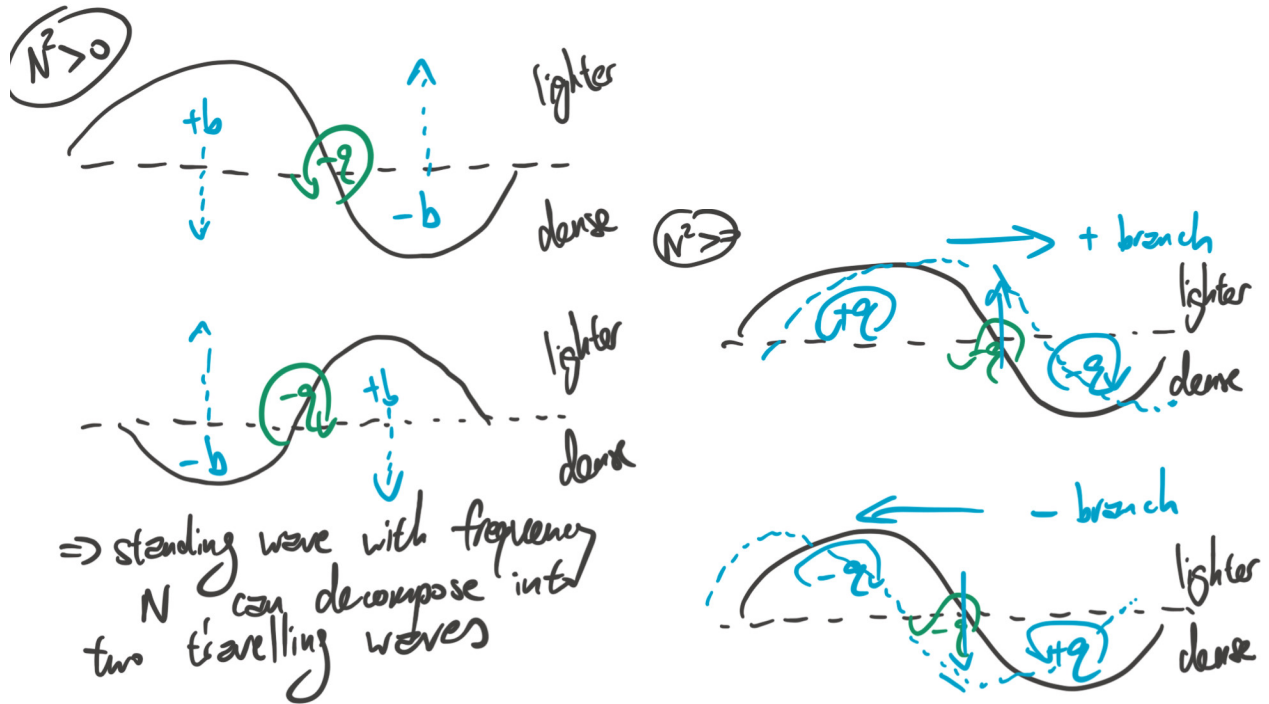 N²>0
lighter
+b
-q
-b
dense
lighter
-q
+b
-b
dense
=> standing wave with frequency
N can decompose into
two travelling waves
N²>=
+ branch
lighter
+q
-q
-q
dense
- branch
lighter
-q
-q
+q
dense